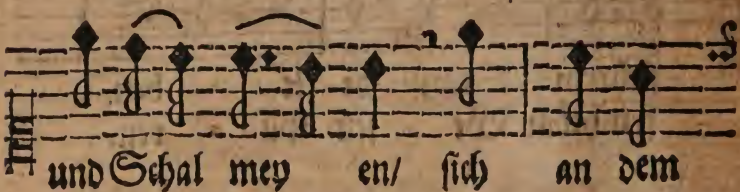 und Schal mey en/ sich an dem